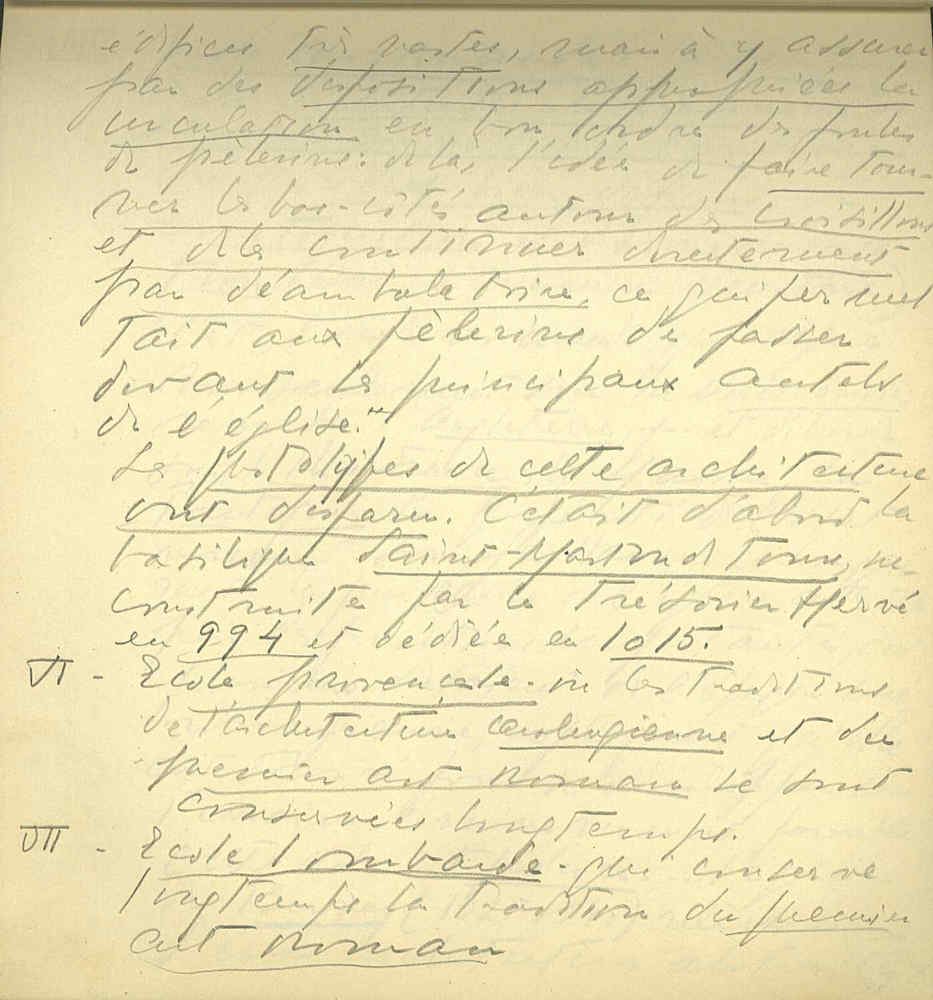 édifices très vastes, mais à y assurer
par des dispositions appropriées la
circulation en bon ordre des foules
de pèlerins: de là, l'idée de faire tour-
ner les bas-côtés autour des croisillons
et de les continuer directement
par déambulatoire, ce qui permet
tait aux pèlerins de passer
devant les principaux autels
de l'église."
Les prototypes de cette architecture
ont disparu. C'était d'abord la
basilique Saint-Martin de Tours, re-
construite par le trésorier Hervé
en 994 et dédiée en 1015.
VI - Ecole provençale - où les traditions
de l'architecture carolingienne et du
premier art roman se sont
conservées longtemps.
VII - Ecole lombarde - qui conserve
longtemps la tradition du premier
art roman